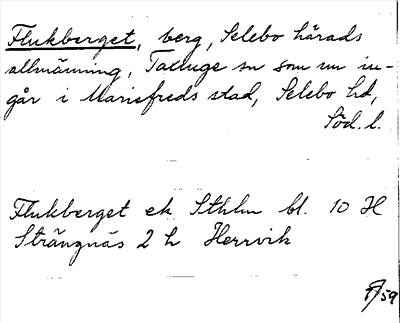 Flukberget, berg, Selebo härads
allmänning, Taxinge sn som nu in-
går i Mariefreds stad, Selebo hd,
Söd. l.
Flukberget ek. Sthlm bl. 10 H
Strängnäs 2 h Herrvik
59